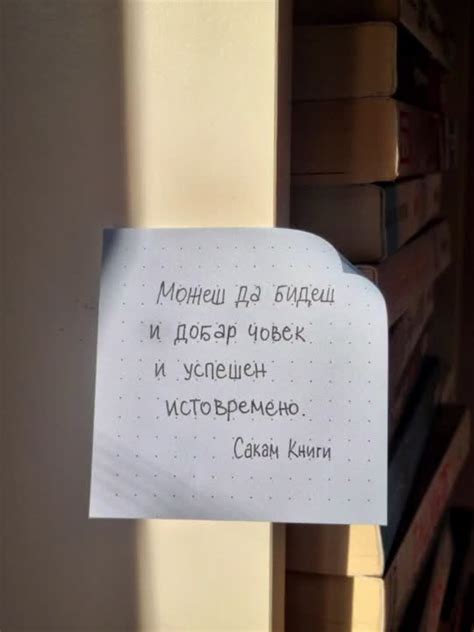 Можеш да бидеш
и добар човек
и успешен
истовремено.
Сакам Книги